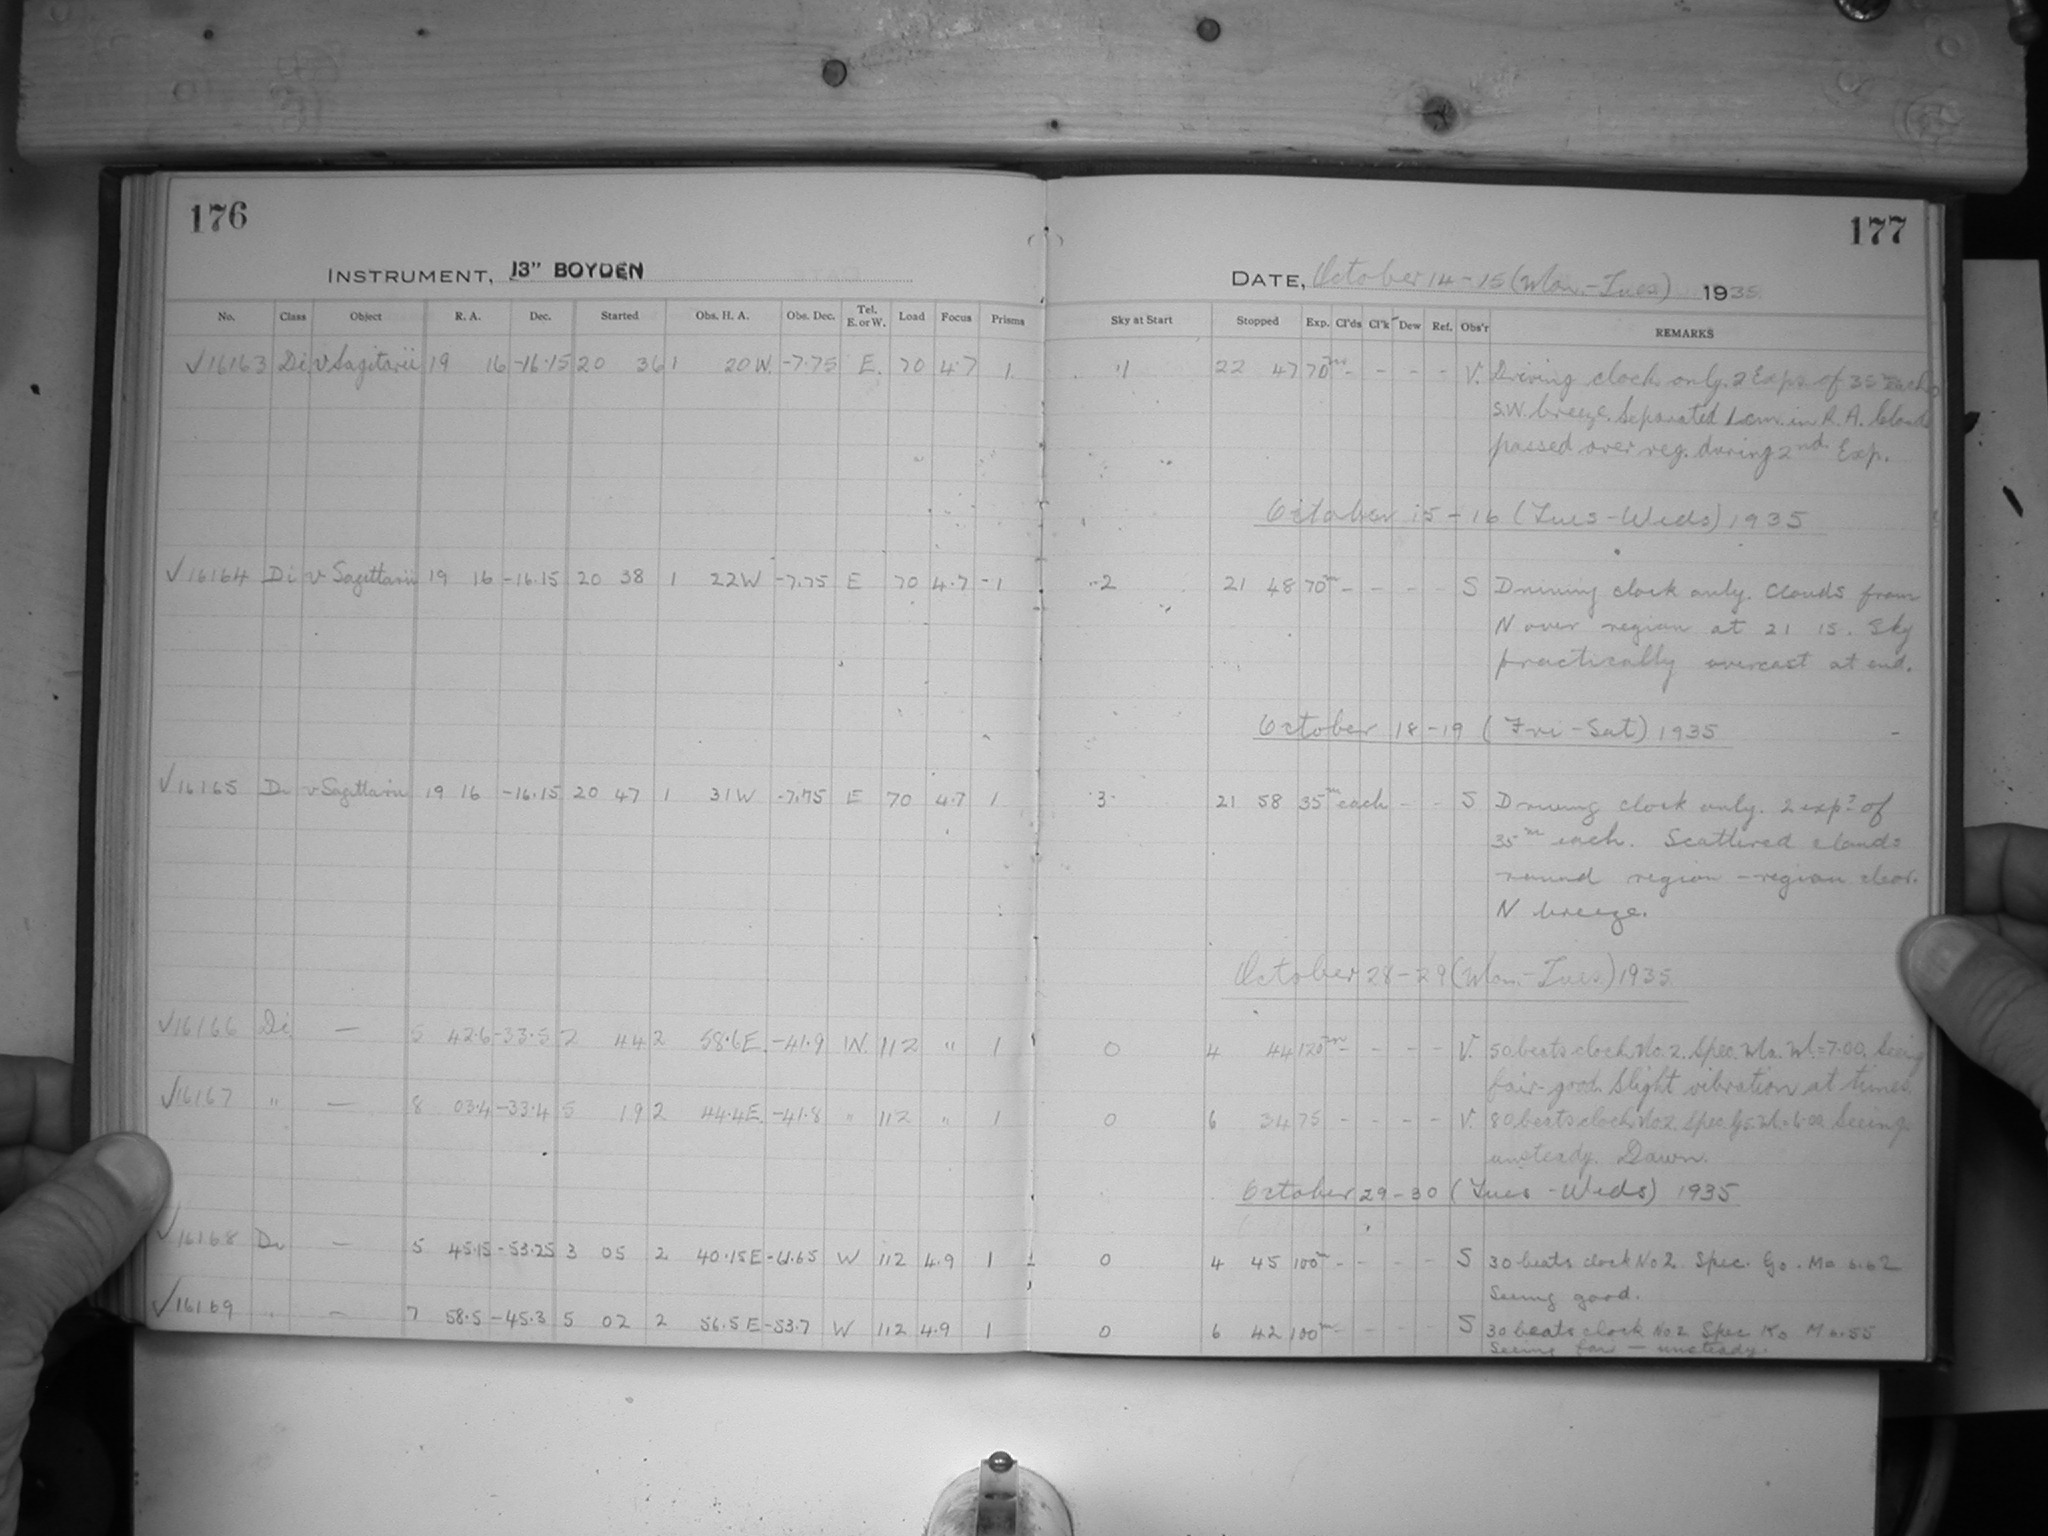 176
177
INSTRUMENT, 13" BOYDEN
DATE, October 14-15 (Mon.-Tues) 1935
No. Class Object R. A. Dec. Started Obs. H. A. Obs. Dec. Tel. E. or W. Load Focus Prisms Sky at Start Stopped Exp. Cl'ds Cl'k Dew Ref. Obs'r REMARKS
√16163 Di v Sagitarii 19 16 -16.15 20 36 1 20 W. -7.75 E. 70 4.7 1 1 22 47 70m - - - - V. Driving clock only. 2 Exps of 35m each
S.W. breeze. Separated 1 cm. in R.A. Cloud
passed over reg. during 2nd Exp.
October 15-16 (Tues-Weds) 1935
√16164 Di v Sagittarii 19 16 -16.15 20 38 1 22W -7.75 E 70 4.7 -1 2 21 48 70m - - - - S Driving clock only. Clouds from
N over region at 21 15. Sky
practically overcast at end.
October 18-19 (Fri-Sat) 1935
√16165 Di v Sagittarii 19 16 -16.15 20 47 1 31W -7.75 E 70 4.7 1 3 21 58 35m each - - S Driving clock only. 2 exps of
35m each. Scattered clouds
round region - region clear.
N breeze.
October 28-29 (Mon-Tues) 1935
√16166 Di. — 5 42.6 -33.5 2 44 2 58.6E. -41.9 IN. 112 " 1 0 4 44 120m - - - - V. 50 beats clock No. 2. Spec. Ma. M.=7.00. Seeing
fair-good. Slight vibration at times.
√16167 " — 8 03.4 -33.4 5 19 2 44.4E. -41.8 " 112 " 1 0 6 34 75 - - - - V. 80 beats clock No 2. Spec. G5. M.=6.00 Seeing
unsteady. Dawn.
October 29-30 (Tues-Weds) 1935
√16168 Di — 5 45.15 -53.25 3 05 2 40.15E -61.65 W 112 4.9 1 0 4 45 100m - - - - S 30 beats clock No 2 Spec. Go. Mo 6.62
Seeing good.
√16169 . — 7 58.5 -45.3 5 02 2 56.5E -53.7 W 112 4.9 1 0 6 42 100m - - - - S 30 beats clock No 2 Spec Ko M 6.55
Seeing fair — unsteady.